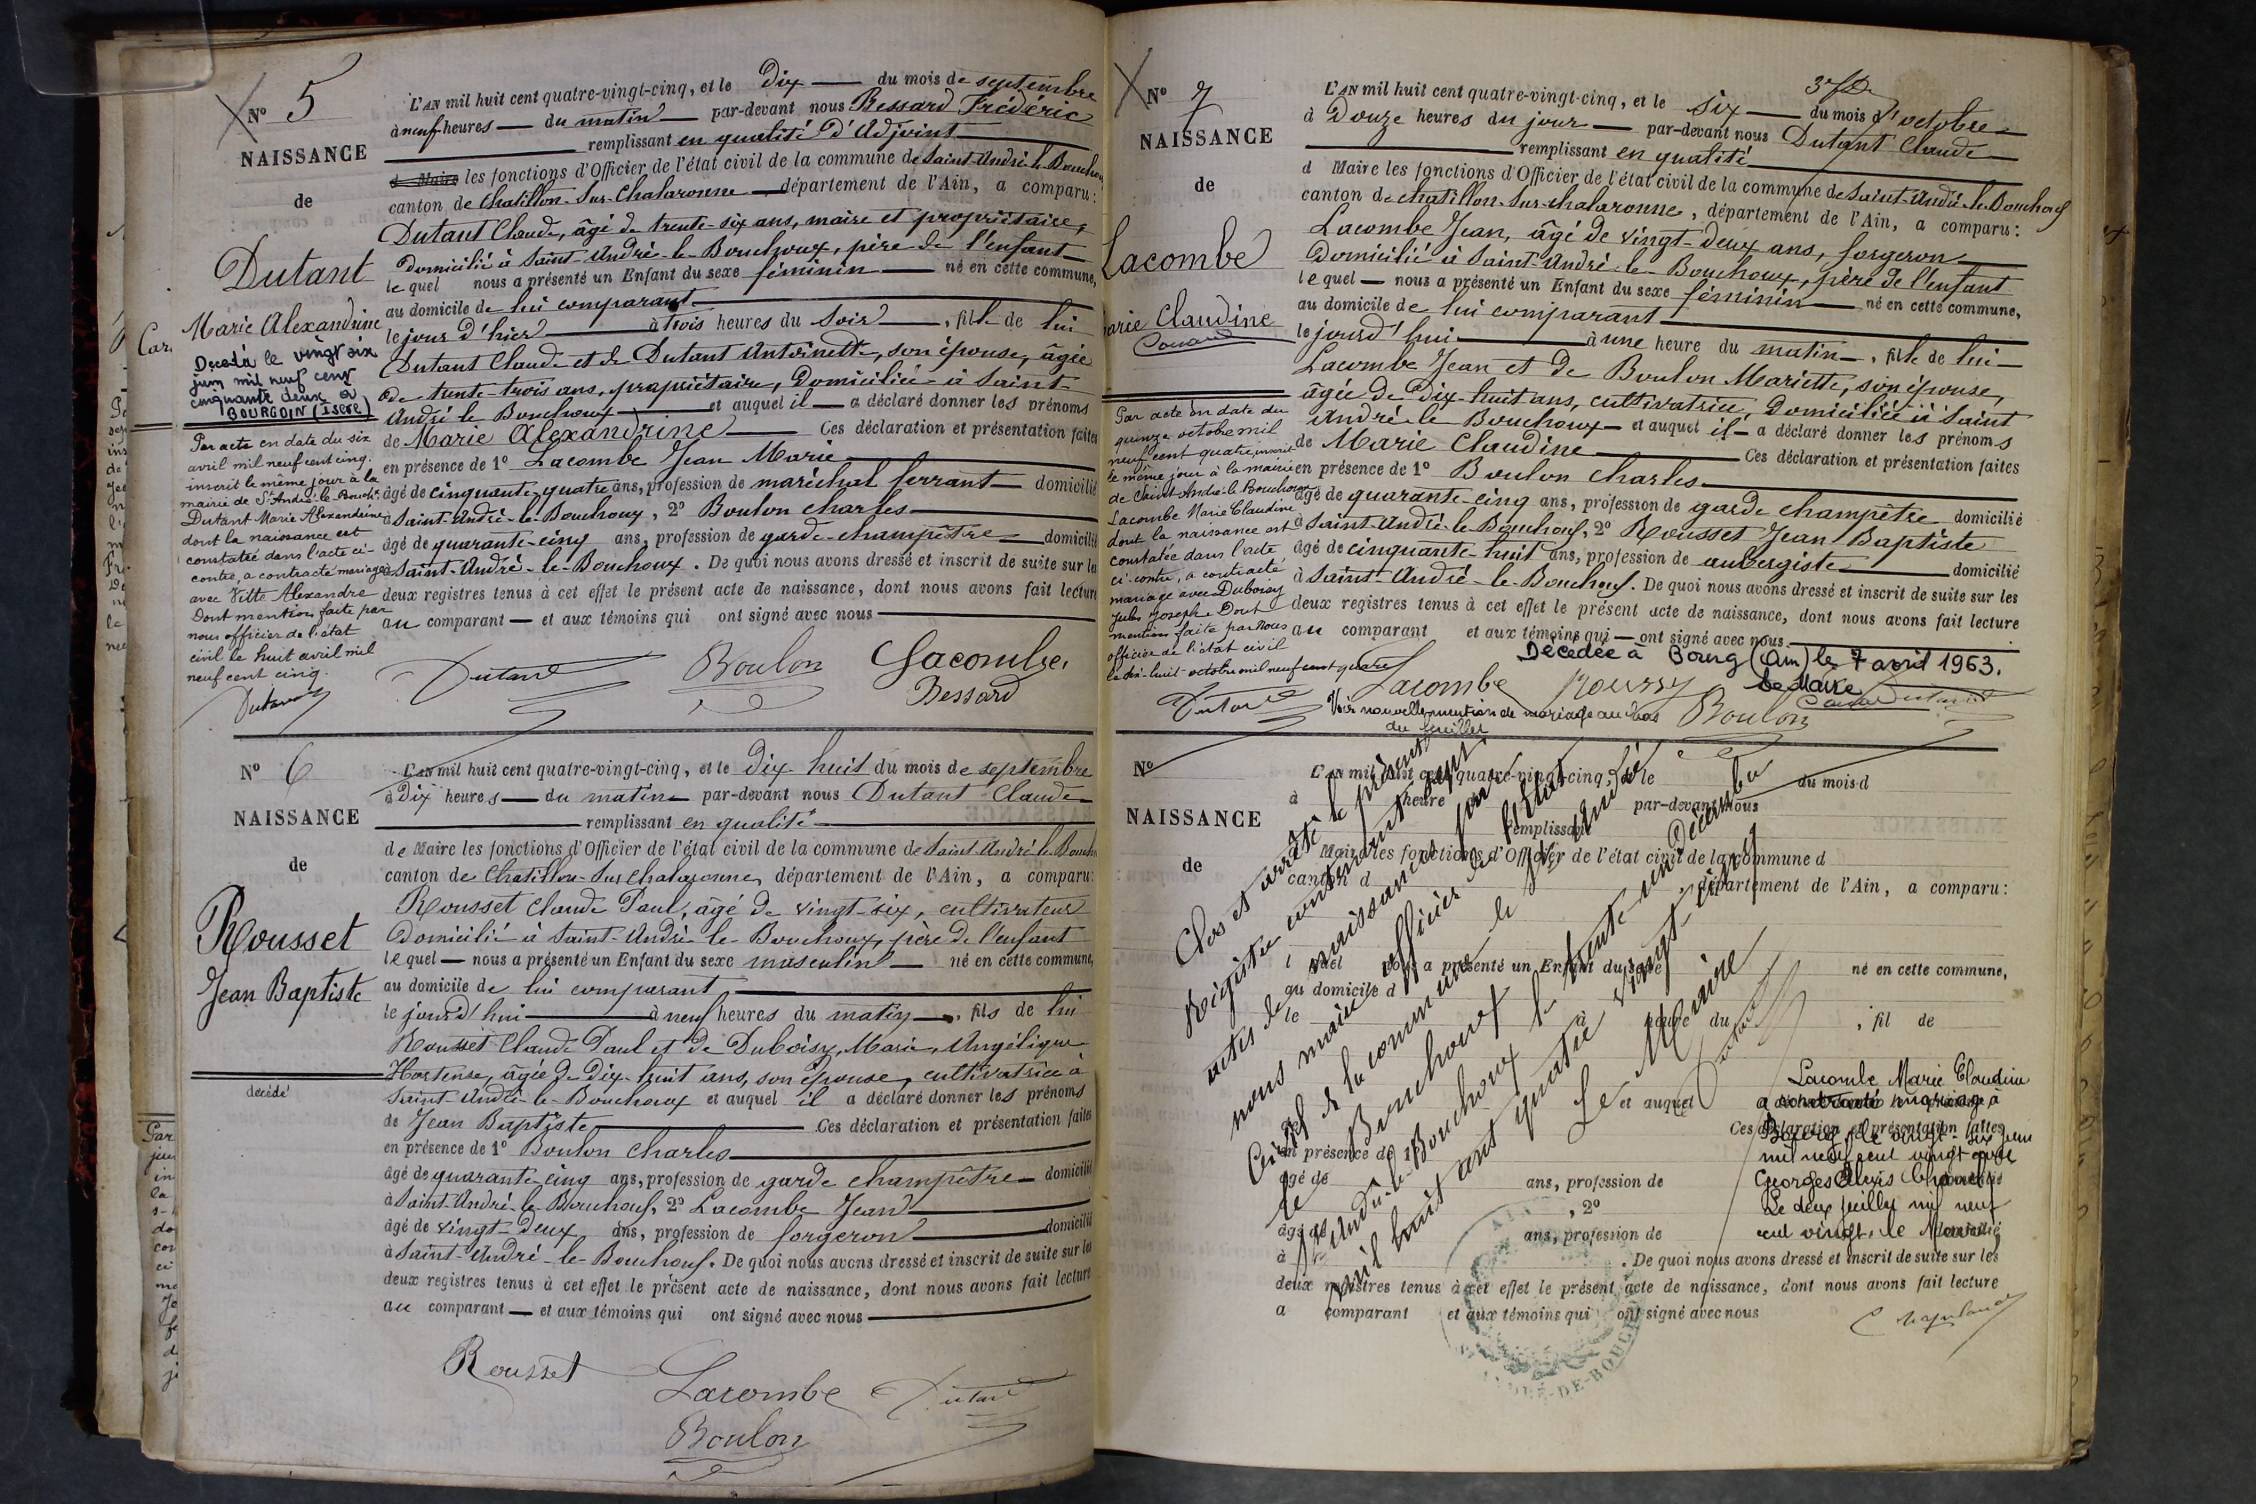 N° 5
NAISSANCE
de
Dutant
Marie Alexandrine
Décédé le vingt six
juin mil neuf cent
cinquante deux à
BOURGOIN (Isère)
Par acte en date du six
avril mil neuf cent cinq.
inscrit le même jour à la
mairie de St André-le-Bouch.
Dutant Marie Alexandrine
dont la naissance est
constatée dans l'acte ci-
contre, a contracté mariage
avec Vitte Alexandre
Dont mention faite par
nous officier de l'état
civil le huit avril mil
neuf cent cinq.
Dutant
L'AN mil huit cent quatre-vingt-cinq, et le dix du mois de septembre
à neuf heures du matin par-devant nous Bessard Frédéric
remplissant en qualité d'Adjoint
d Maire les fonctions d'Officier de l'état civil de la commune de Saint-André-le-Bouchoux
canton de Chatillon-Sur-Chalaronne département de l'Ain, a comparu:
Dutant Claude, âgé de trente-six ans, maire et propriétaire,
domicilié à Saint-André-le-Bouchoux, père de l'enfant
lequel nous a présenté un Enfant du sexe féminin né en cette commune,
au domicile de lui comparant
le jour d'hier à trois heures du soir, fille de lui
Dutant Claude et de Dutant Antoinette, son épouse, âgée
de trente-trois ans, propriétaire, domiciliée à Saint-
André-le-Bouchoux et auquel il a déclaré donner les prénoms
de Marie Alexandrine Ces déclaration et présentation faites
en présence de 1° Lacombe Jean Marie
âgé de cinquante-quatre ans, profession de maréchal ferrant domicilié
à Saint-André-le-Bouchoux, 2° Boulon Charles
âgé de quarante-cinq ans, profession de garde-champêtre domicilié
à Saint-André-le-Bouchoux. De quoi nous avons dressé et inscrit de suite sur les
deux registres tenus à cet effet le présent acte de naissance, dont nous avons fait lecture
au comparant et aux témoins qui ont signé avec nous
Dutant Boulon Lacombe
Bessard
N° 6
NAISSANCE
de
Rousset
Jean Baptiste
décédé
L'AN mil huit cent quatre-vingt-cinq, et le dix-huit du mois de septembre
à dix heures du matin par-devant nous Dutant Claude
remplissant en qualité
de Maire les fonctions d'Officier de l'état civil de la commune de Saint-André-le-Bouch
canton de Chatillon-Sur Chalaronne, département de l'Ain, a comparu:
Rousset Claude Paul, âgé de vingt-six, cultivateur
domicilié à Saint-André-le-Bouchoux, père de l'enfant
lequel nous a présenté un Enfant du sexe masculin né en cette commune,
au domicile de lui comparant
le jourd'hui à neuf heures du matin, fils de lui
Rousset Claude Paul et de Duboisy, Marie, Angélique
Hortense, âgée de dix-huit ans, son épouse, cultivatrice à
Saint André-le-Bouchoux et auquel il a déclaré donner les prénoms
de Jean Baptiste Ces déclaration et présentation faites
en présence de 1° Boulon Charles
âgé de quarante-cinq ans, profession de garde champêtre domicilié
à Saint-André-le-Bouchoux, 2° Lacombe Jean
âgé de vingt-deux ans, profession de forgeron domicilié
à Saint-André-le-Bouchoux. De quoi nous avons dressé et inscrit de suite sur les
deux registres tenus à cet effet le présent acte de naissance, dont nous avons fait lecture
au comparant et aux témoins qui ont signé avec nous
Rousset Lacombe Dutant
Boulon
N° 7
NAISSANCE
de
Lacombe
Marie Claudine
Par acte en date du
quinze octobre mil
neuf cent quatre, inscrit
le même jour à la mairie
de Saint-André-le-Bouchoux
Lacombe Marie Claudine
dont la naissance est
constatée dans l'acte
ci-contre, a contracté
mariage avec Duboisy
Jules Joseph. Dont
mention faite par nous
officier de l'état civil
le dix-huit octobre mil neuf cent quatre
Dutant
L'AN mil huit cent quatre-vingt-cinq, et le six du mois d'octobre
à douze heures du jour par-devant nous Dutant Claude
remplissant en qualité
d Maire les fonctions d'Officier de l'état civil de la commune de Saint-André-le-Bouchoux
canton de Chatillon-Sur-Chalaronne, département de l'Ain, a comparu:
Lacombe Jean, âgé de vingt-deux ans, forgeron
domicilié à Saint-André-le-Bouchoux, père de l'enfant
lequel nous a présenté un Enfant du sexe féminin né en cette commune,
au domicile de lui comparant
le jourd'hui à une heure du matin, fille de lui
Lacombe Jean et de Boulon Mariette, son épouse,
âgée de dix-huit ans, cultivatrice, domiciliée à Saint
André-le-Bouchoux et auquel il a déclaré donner les prénoms
de Marie Claudine Ces déclaration et présentation faites
en présence de 1° Boulon Charles
âgé de quarante-cinq ans, profession de garde champêtre domicilié
à Saint-André-le-Bouchoux, 2° Rousset Jean Baptiste
âgé de cinquante-huit ans, profession de aubergiste domicilié
à Saint-André-le-Bouchoux. De quoi nous avons dressé et inscrit de suite sur les
deux registres tenus à cet effet le présent acte de naissance, dont nous avons fait lecture
au comparant et aux témoins qui ont signé avec nous
Décédée à Bourg (Ain) le 7 avril 1963.
Le Maire
Lacombe Boulon
Voir nouvelle mention de mariage au bas
du feuillet
N°
NAISSANCE
de
L'AN mil huit cent quatre-vingt-cinq, et le du mois d
à heure par-devant nous
remplissant
Maire les fonctions d'Officier de l'état civil de la commune d
canton d , département de l'Ain, a comparu:
l quel nous a présenté un Enfant du sexe né en cette commune,
au domicile d
le à heure du , fil de
et auquel
Ces déclaration et présentation faites
en présence de 1°
âgé de ans, profession de
, 2°
âgé de ans, profession de
à . De quoi nous avons dressé et inscrit de suite sur les
deux registres tenus à cet effet le présent acte de naissance, dont nous avons fait lecture
a comparant et aux témoins qui ont signé avec nous
Clos et arrêté le présent
Registre contenant sept
actes de naissances par
nous maire officier de l'état
Civil de la commune de St André
le Bouchoux
St André-le-Bouchoux le trente-un Décembre
mil huit cent quatre vingt-cinq
Le Maire
Dutant
Lacombe Marie Claudine
a contracté mariage à
Bourg, le vingt-six juin
mil neuf cent vingt avec
Georges Alexis
Le deux juillet mil neuf
cent vingt. le Maire